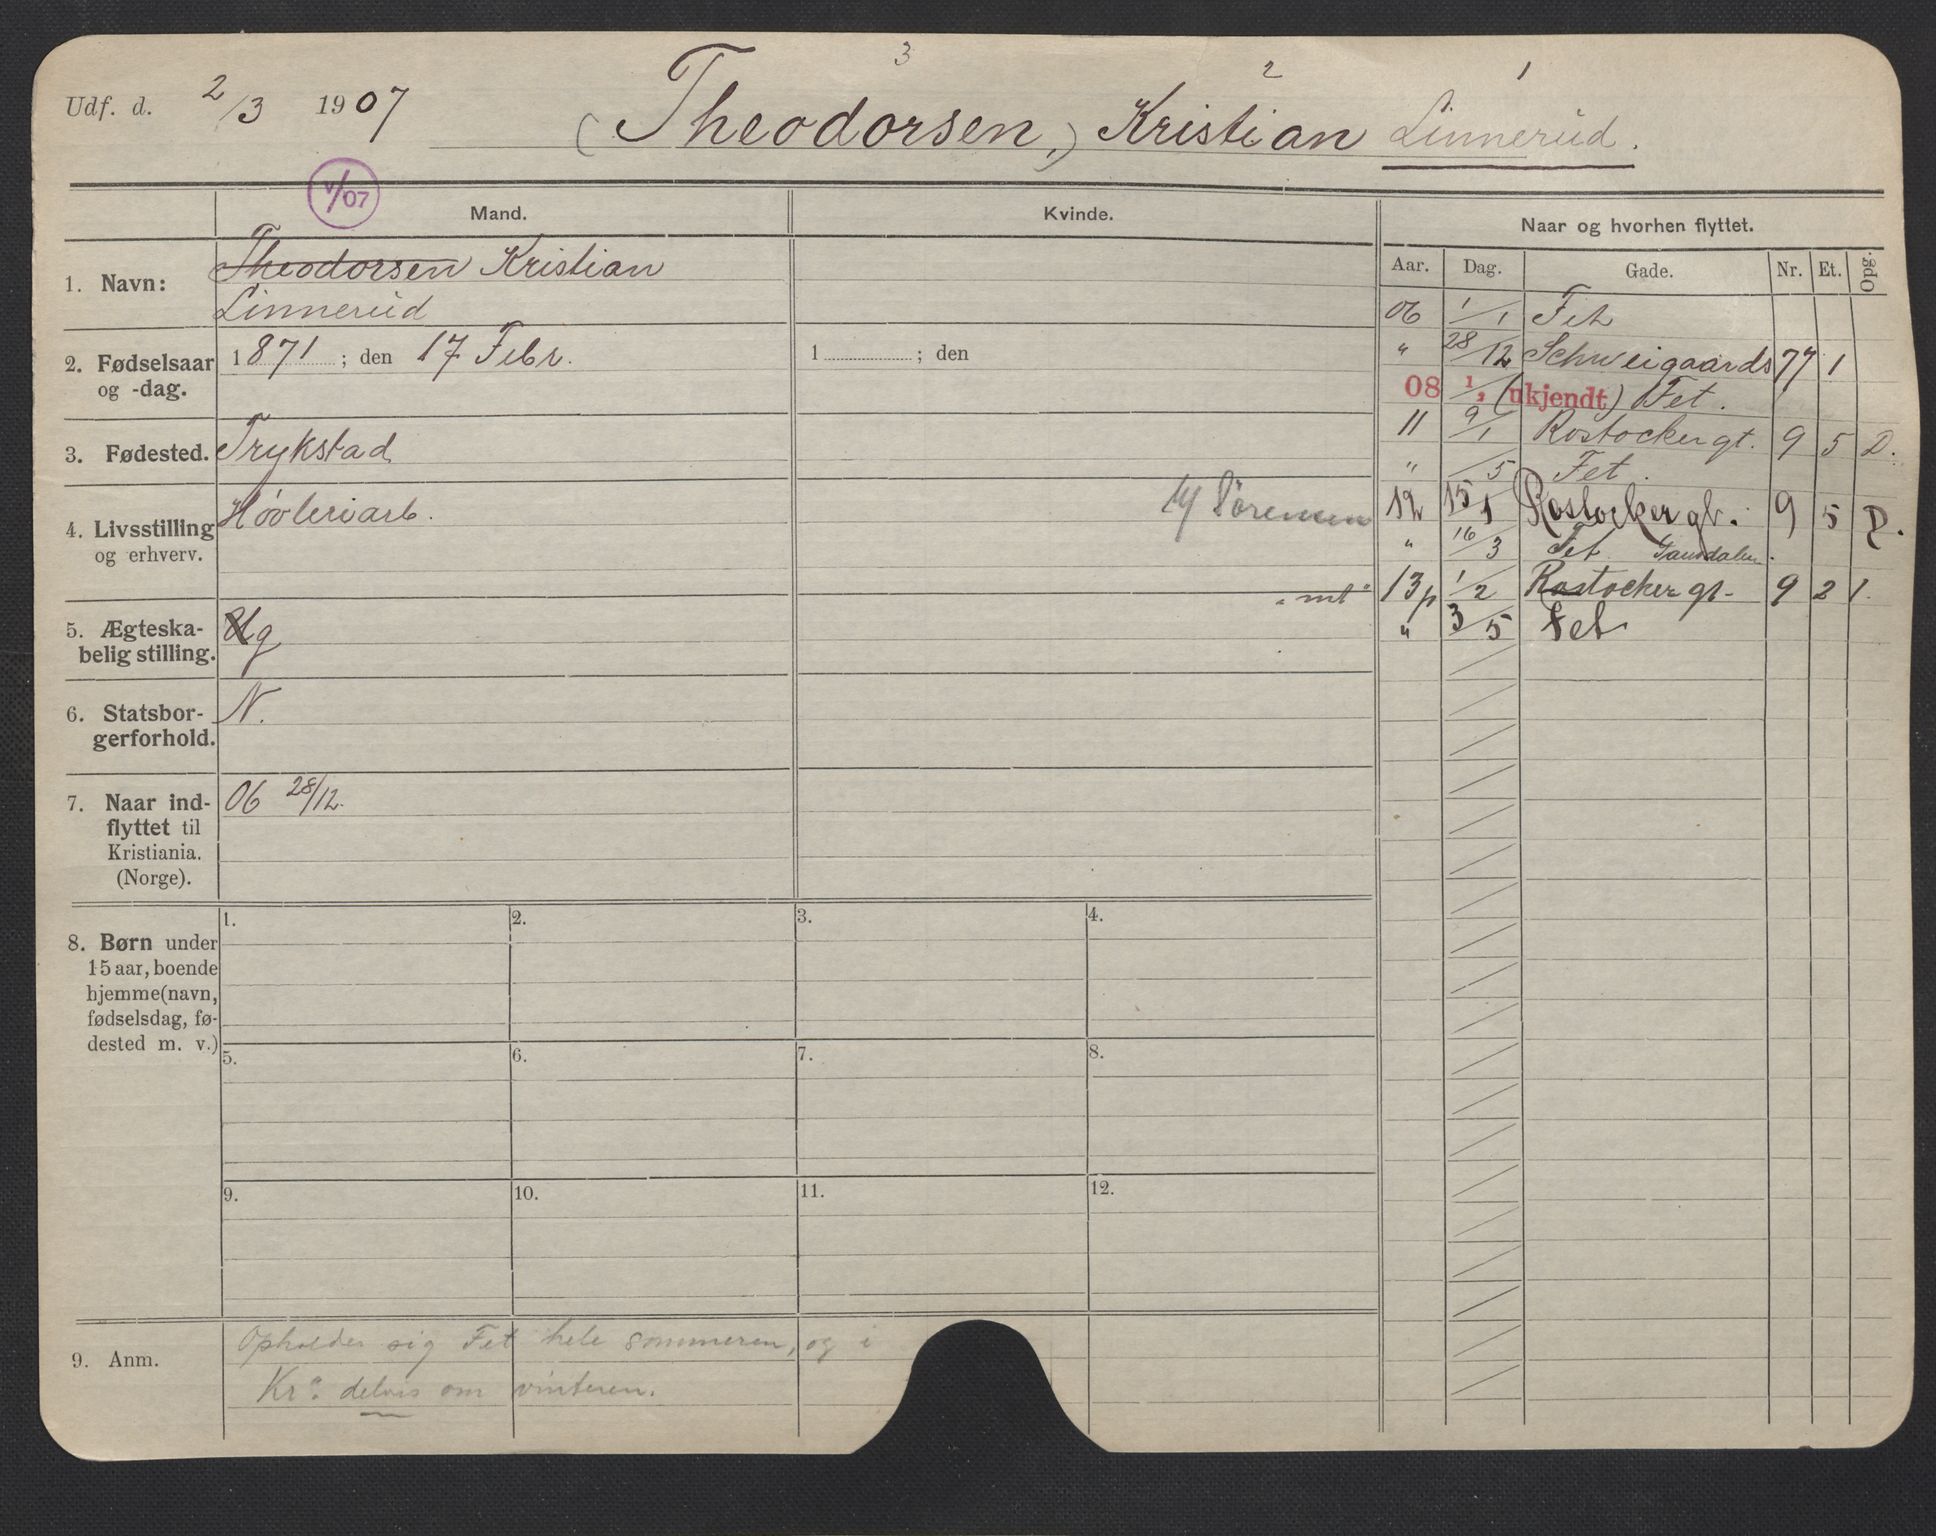 3 2 1
Udf. d. 2/3 1907 (Theodorsen,) Kristian Linnerud.
V/07
Mand. Kvinde. Naar og hvorhen flyttet.
Aar. Dag. Gade. Nr. Et. Opg.
1. Navn: Theodorsen Kristian
Linnerud
2. Fødselsaar og -dag. 1871; den 17 Febr. 1 ; den
3. Fødested. Trykstad
4. Livsstilling og erhverv. Høvleriarb.
5. Ægteska-
belig stilling. Ug
6. Statsbor-
gerforhold. N.
7. Naar ind-
flyttet til
Kristiania.
(Norge). 06 28/12.
06 1/1 Fet
" 28/12 Schweigaards 77 1
08 1/1 (ukjendt) Fet.
11 9/1 Rostockergt. 9 5 D.
" /5 Fet.
M Sørensen 12 15/1 Rostockergt. 9 5 D.
" 16/3 Fet
"mt" 13p 1/2 Rostockergt. 9 2 1.
" 3/5 Fet
8. Børn under
15 aar, boende
hjemme (navn,
fødselsdag, fø-
dested m. v.)
1. 2. 3. 4.
5. 6. 7. 8.
9. 10. 11. 12.
9. Anm. Opholder sig Fet hele sommeren, og i
Kra. delvis om vinteren.